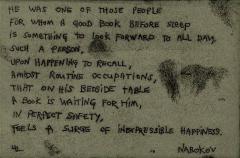 HE WAS ONE OF THOSE PEOPLE
FOR WHOM A GOOD BOOK BEFORE SLEEP
IS SOMETHING TO LOOK FORWARD TO ALL DAY.
SUCH A PERSON,
UPON HAPPENING TO RECALL,
AMIDST ROUTINE OCCUPATIONS,
THAT ON HIS BEDSIDE TABLE
A BOOK IS WAITING FOR HIM,
IN PERFECT SAFETY,
FEELS A SURGE OF INEXPRESSIBLE HAPPINESS.
NABOKOV